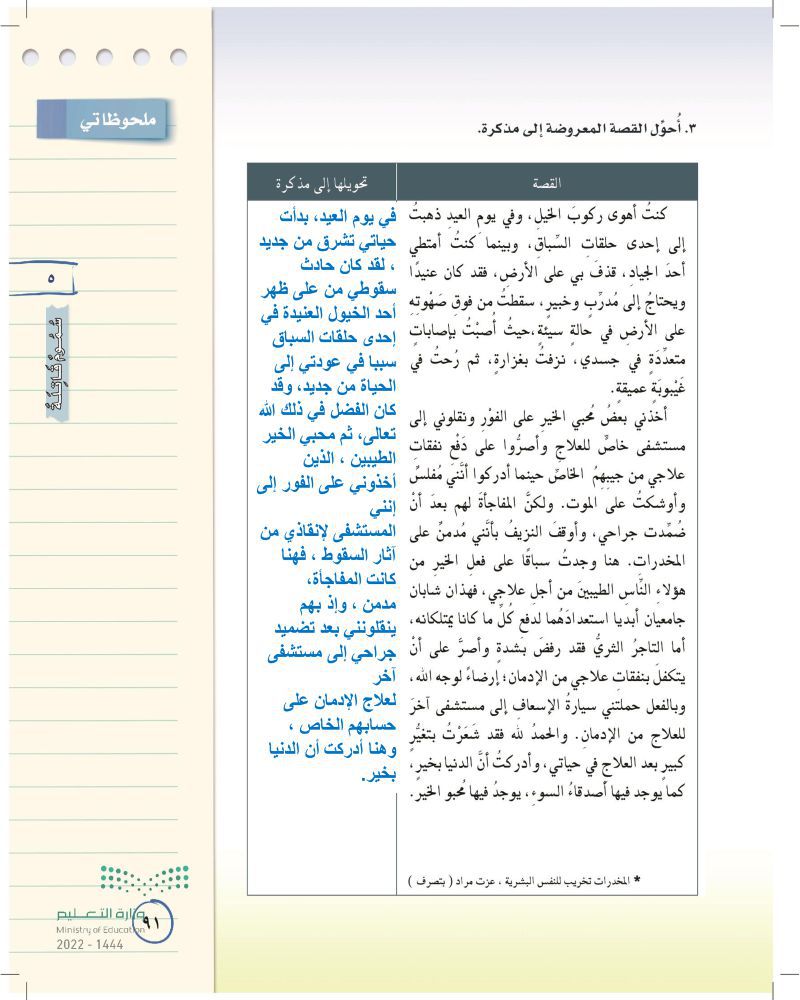 ملحوظاتي
٣. أُحوِّل القصة المعروضة إلى مذكرة.
القصة
تحويلها إلى مذكرة
كنتُ أهوى ركوبَ الخيلِ، وفي يوم العيدِ ذهبتُ
إلى إحدى حلقاتِ السِّباقِ، وبينما كنتُ أمتطي
أحدَ الجيادِ، قذفَ بي على الأرضِ، فقد كان عنيدًا
ويحتاجُ إلى مُدرِّبٍ وخبيرٍ، سقطتُ من فوقِ صَهْوتِهِ
على الأرضِ في حالةٍ سيئةٍ،حيثُ أُصبْتُ بإصاباتٍ
متعدِّدَةٍ في جسدي، نزفتُ بغزارةٍ، ثم رُحتُ في
غَيْبوبَةٍ عميقةٍ.
أخذني بعضُ مُحبي الخيرِ على الفوْرِ ونقلوني إلى
مستشفى خاصٍّ للعلاجِ وأصرُّوا على دَفْعِ نفقاتِ
علاجي من جيبِهِمُ الخاصِّ حينما أدركوا أنَّني مُفلسٌ
وأوشكتُ على الموت. ولكنَّ المفاجأةَ لهم بعدَ أنْ
ضُمِّدت جراحي، وأوقفَ النزيفُ بأنَّني مُدمنٌ على
المخدرات. هنا وجدتُ سباقًا على فعلِ الخيرِ من
هؤلاءِ النَّاسِ الطيبينَ من أجلِ علاجي، فهذان شابان
جامعيان أبديا استعدادَهُما لدفعِ كُلِّ ما كانا يمتلكانه،
أما التاجرُ الثريُّ فقد رفضَ بشدةٍ وأصرَّ على أنْ
يتكفلَ بنفقاتِ علاجي من الإدمان؛ إرضاءً لوجه الله،
وبالفعل حملتني سيارةُ الإسعافِ إلى مستشفى آخرَ
للعلاجِ من الإدمانِ. والحمدُ للهِ فقد شعَرْتُ بتغيُّرٍ
كبيرٍ بعد العلاجِ في حياتي، وأدركتُ أنَّ الدنيا بخيرٍ،
كما يوجد فيها أصدقاءُ السوءِ، يوجدُ فيها مُحبو الخيرِ.
* المخدرات تخريب للنفس البشرية ، عزت مراد ( بتصرف )
في يوم العيد، بدأت
حياتي تشرق من جديد
، لقد كان حادث
سقوطي من على ظهر
أحد الخيول العنيدة في
إحدى حلقات السباق
سببا في عودتي إلى
الحياة من جديد، وقد
كان الفضل في ذلك الله
تعالى، ثم محبي الخير
الطيبين ، الذين
أخذوني على الفور إلى
إنني
المستشفى لإنقاذي من
آثار السقوط ، فهنا
كانت المفاجأة،
مدمن ، وإذ بهم
ينقلونني بعد تضميد
جراحي إلى مستشفى
آخر
لعلاج الإدمان على
حسابهم الخاص ،
وهنا أدركت أن الدنيا
بخير.
٥
سُمُومٌ قَاتِلَةٌ
وزارة التعليم
Ministry of Education
2022 - 1444
٩١